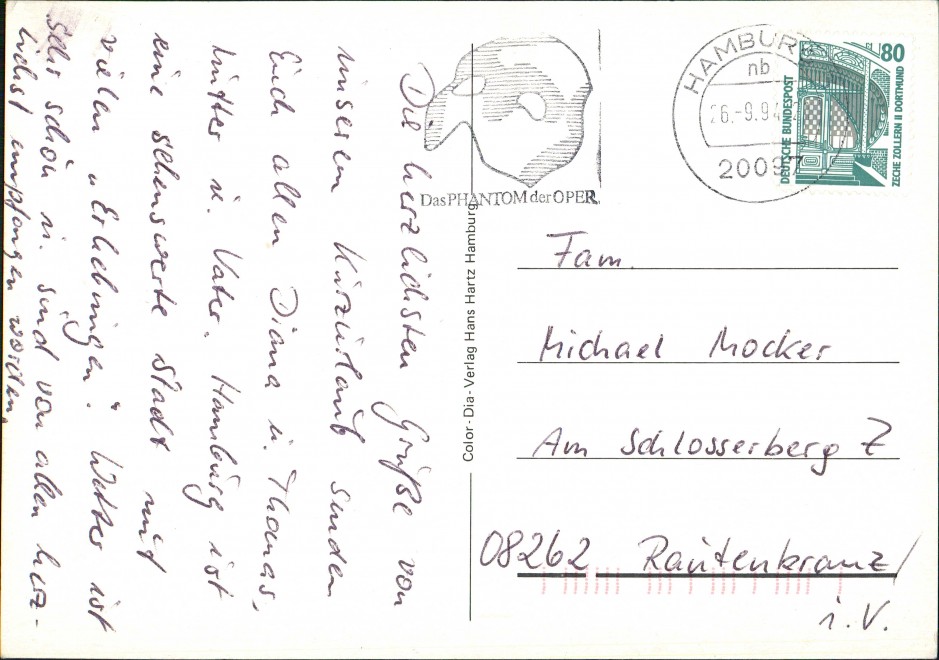 Die herzlichsten Grüße von
unserem Kurzurlaub senden
Euch allen Diana u. Thomas,
Mutter u. Vater. Hamburg ist
eine sehenswerte Stadt mit
vielen „Erlebnigen“. Wetter ist
sehr schön u. sind von allen herz-
lichst empfangen worden.
Das PHANTOM der OPER
HAMBURG
nb
26.-9.94
20097
80
DEUTSCHE BUNDESPOST
ZECHE ZOLLERN II DORTMUND
Color-Dia-Verlag Hans Hartz Hamburg
Fam.
Michael Mocker
Am Schlosserberg 7
08262 Rautenkranz/
i.V.